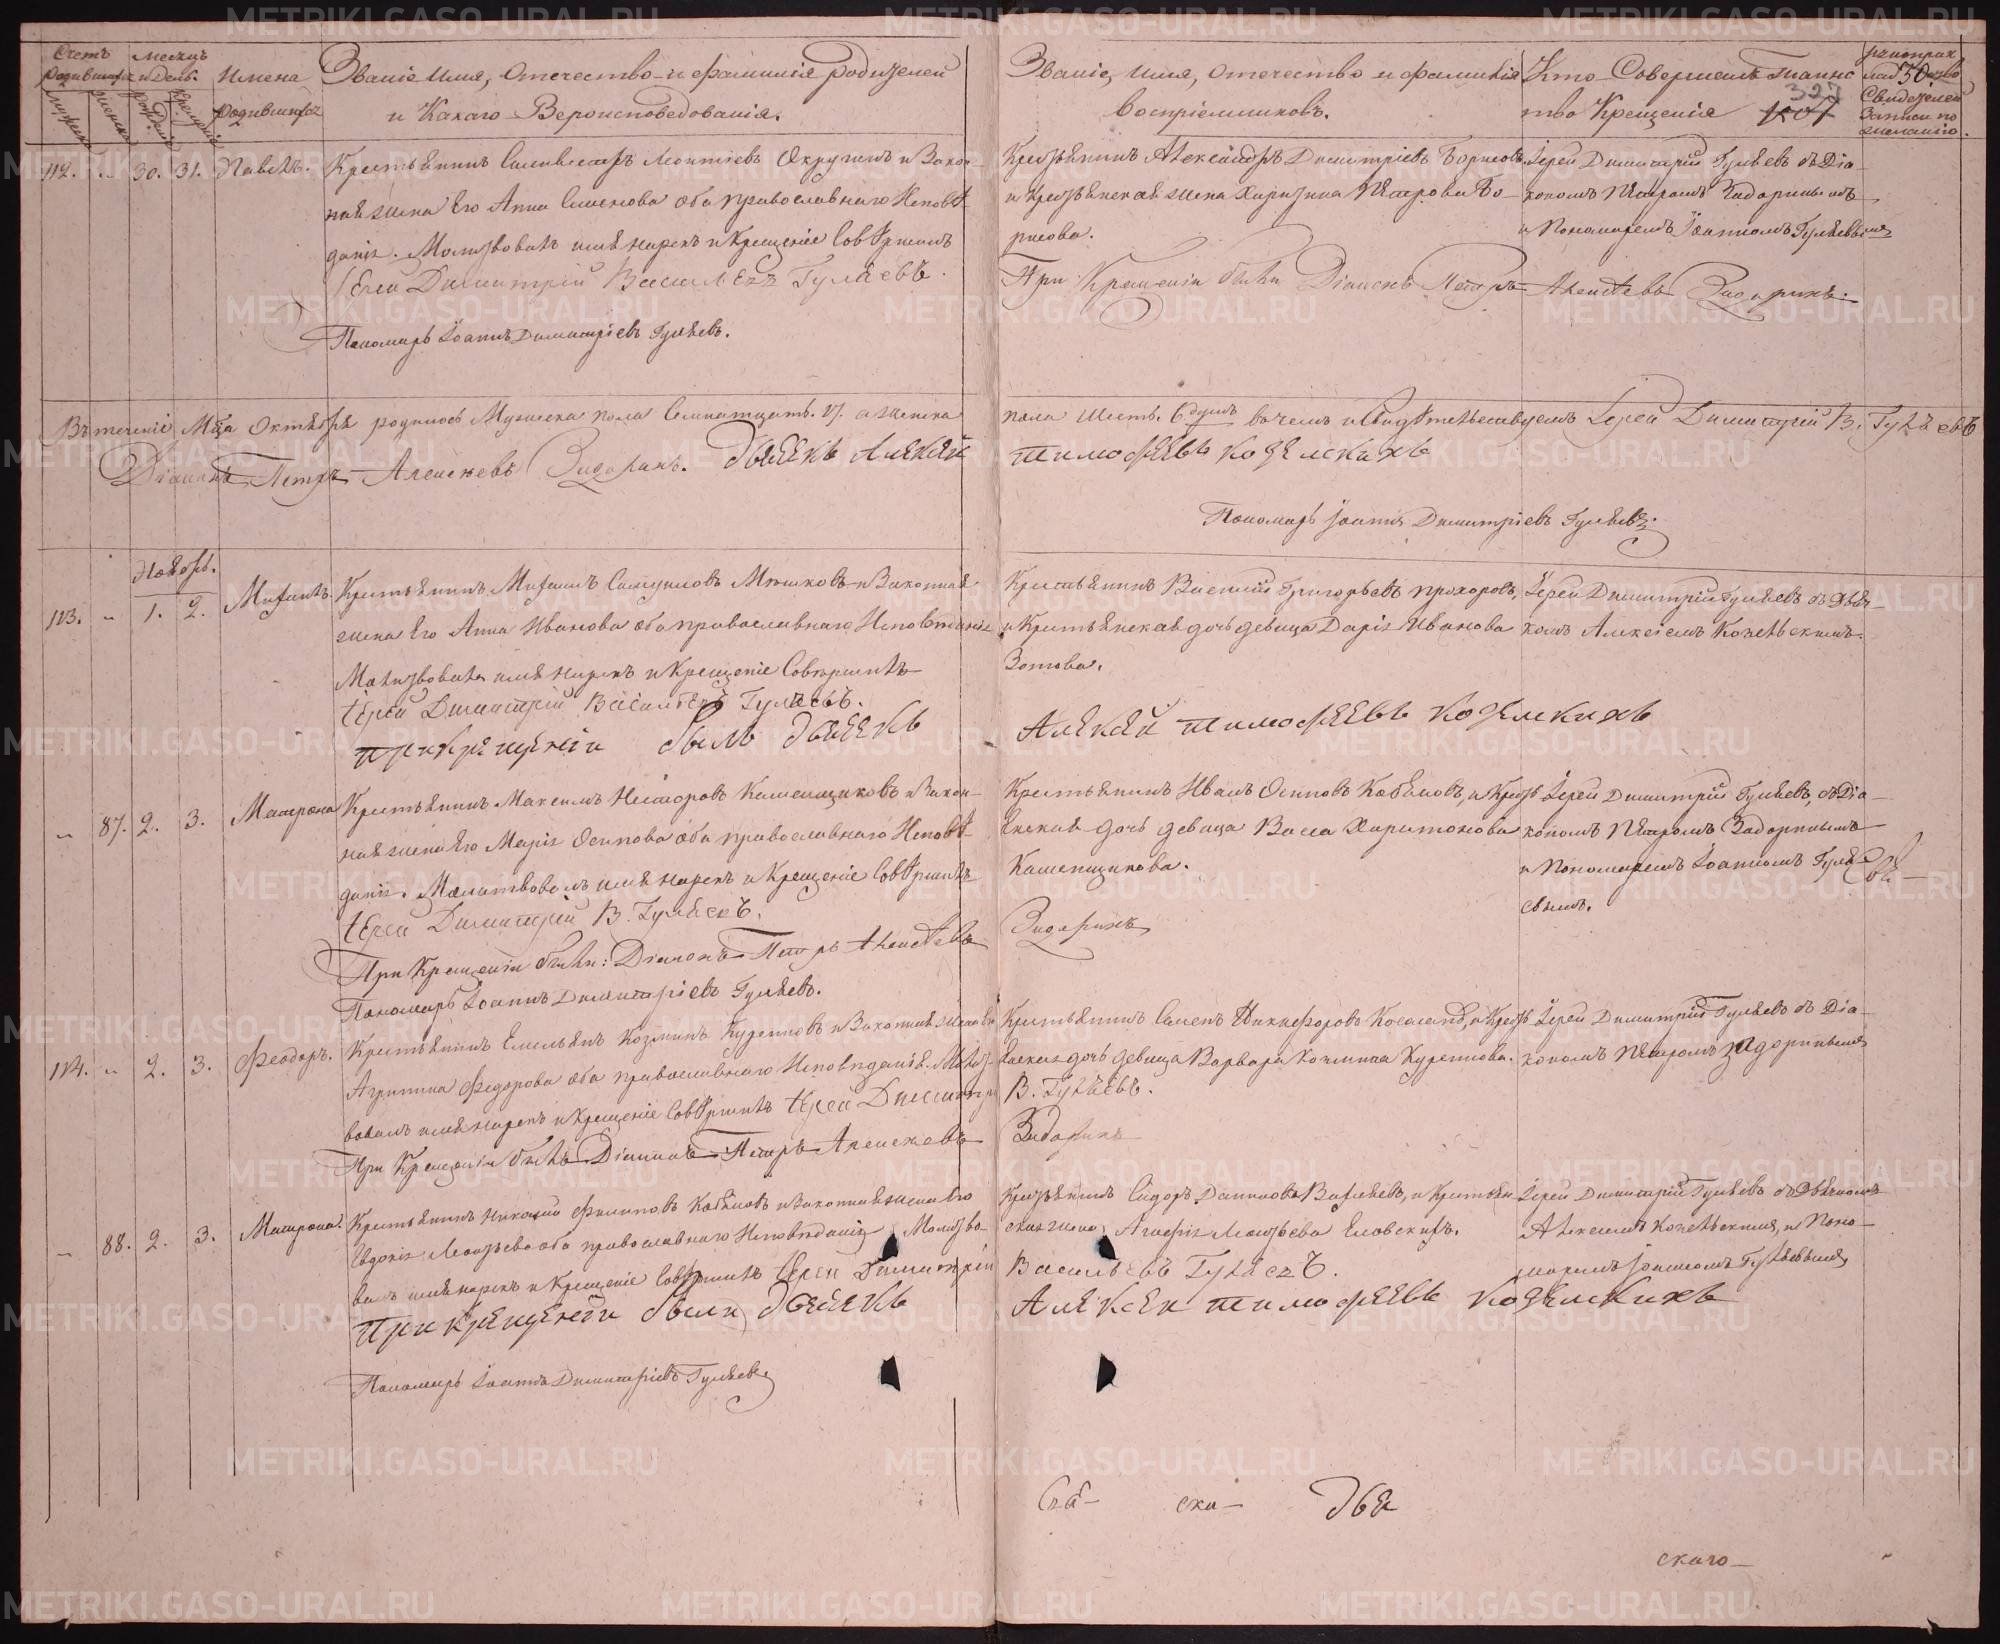 Счетъ родившихся
Мѣсяцъ и День
мужеска
женска
рожденія
крещенія
Имена родившихся
Званіе, Имя, Отечество и фамилія родителей
и Какаго Вероисповедованія.
Званіе, имя, отечество и фамилія
воспріемниковъ.
Кто Совершалъ таинс
тво Крещенія
327
Свидетелей
записи по
желанію.
112. 30. 31. Павелъ.
Крестьянинъ Силивестръ Леонтіевъ и Закон-
ная жена Его Анна Семенова оба православнаго Исповѣ
данія. Молитвовалъ имя нарекъ и Крещеніе Совѣршилъ
Іерей Димитрій Васильевъ Гуляевъ.
Пономарь Іоаннъ Димитріевъ Гуляевъ.
Крестьянинъ Александръ Димитріевъ Борисовъ
и Крестьянская жена Харитина Петрова Бо-
рисова.
При Крещеніи были Діаконъ Петръ Алексѣевъ Задоринъ.
Іерей Димитрій Гуляевъ съ Діа-
кономъ Петромъ Задоринымъ
и Пономаремъ Іоанномъ Гуляевымъ
Въ теченіе Мца Октября родилось Мужеска пола Семнатцать. 17. а женска
пола шесть. 6 душъ въ чемъ и Свидѣтельствуемъ Іерей Димитрій В. Гуляевъ
Діаконъ Петръ Алексѣевъ Задоринъ. Дьячекъ Алексей
тимофеевъ козелскихъ
Пономарь Іоаннъ Димитріевъ Гуляевъ.
Ноябрь.
113. " 1. 2. Михаилъ
Крестьянинъ Михаилъ Самуиловъ Мешковъ и Законная
жена Его Анна Иванова оба православнаго Исповеданія
Молитвовалъ имя нарекъ и Крещеніе Совершилъ
Іерей Димитрій Васильевъ Гуляевъ.
прикрещеніи былъ дьячекъ
Крестьянинъ Василій Григорьевъ прохоровъ,
и Крестьянская дочь девица Дарія Иванова
Зотова.
Алексей тимофеевъ козелскихъ
Іерей Димитрій Гуляевъ съ Дьяч-
комъ Алексіемъ Козельскимъ.
" 87. 2. 3. Матрона
Крестьянинъ Максимъ Несторовъ Каменщиковъ и Закон-
ная жена Его Марія Осипова оба православнаго Исповѣ
данія. Молитвовалъ имя нарекъ и Крещеніе Совѣршилъ
Іерей Димитрій В. Гуляевъ.
При Крещеніи были: Діаконъ Петръ Алексѣевъ
Пономарь Іоаннъ Димитріевъ Гуляевъ.
Крестьянинъ Иванъ Осиповъ Кабаковъ, и Кресть
янская дочь девица Васса Харитонова
Каменщикова.
Задоринъ
Іерей Димитрій Гуляевъ, съ Діа-
кономъ Петромъ Задоринымъ
и Пономаремъ Іоанномъ Гуля
евымъ.
114. " 2. 3. Феодоръ.
Крестьянинъ Емельянъ Козминъ и Законная жена Его
Агрипина Федорова оба православнаго Исповѣданія. Молит
вовалъ имя нарекъ и Крещеніе Совѣршилъ Іерей Димитрій
При Крещеніи былъ Діаконъ Петръ Алексѣевъ
Крестьянинъ Семенъ Никифоровъ и Кресть
янская дочь девица Варвара Козмина
В. Гуляевъ.
Задоринъ
Іерей Димитрій Гуляевъ съ Діа-
кономъ Петромъ Задоринымъ
" 88. 2. 3. Матрона.
Крестьянинъ Николай Филиповъ Кабаковъ и Законная жена Его
Евдокія оба православнаго Исповѣданія Молитво-
валъ имя нарекъ и Крещеніе Совѣршилъ Іерей Димитрій
прикрещеніи были дьячекъ
Пономарь Іоаннъ Димитріевъ Гуляевъ.
Крестьянинъ Сидоръ Даниловъ и Крестьян
ская жена Агафія Еловскихъ.
Васильевъ Гуляевъ.
Алексеи тимофеевъ козелскихъ
Іерей Димитрій Гуляевъ съ Дьячкомъ
Алексіемъ Козельскимъ, и Поно-
маремъ Іоанномъ Гуляевымъ
ска- два
скаго-